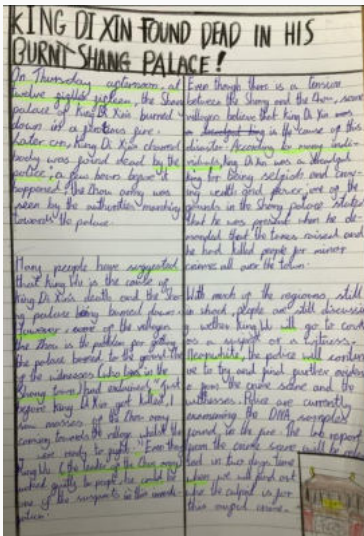 KING DI XIN FOUND DEAD IN HIS
BURNT SHANG PALACE!
On Thursday afternoon, at
twelve fifteen, the Shang
palace of King Di Xin burned
down in a fire.
Later on, King Di Xin charred
body was found dead by the
police; a few hours before it
happened, the Zhou army was
seen by the authorities marching
towards the palace.
Many people have suggested
that King Wu is the cause of
King Di Xin's death and the Shan-
g palace being burned down.
However, some of the villagers
the Zhou is the problem for getting
the palace burned to the ground. One
of the witnesses (who lives in the
Shang farm) had explained "Just
before King Di Xin got killed, I
saw masses of the Zhou army
coming towards the village whilst the
are ready to fight". Even tho
King Wu (the leader of the Zhou army
looked guilty to people, he could be
one of the suspects in this
Even though there is a tension
between the Shang and the Zhou, some
villagers believe that King Di Xin was
is the cause of this
disaster. According to many indi-
viduals, King Di Xin was a
king for being selfish and
wealth and power; one of the
in the Shang palace states
that he was present when he de-
manded that the taxes raised and
he had killed people for minor
crimes all over the town.
With much of the regions still
in shock, people are still discussin
g wether King Wu will go to court
as a suspect or a witness.
Meanwhile, the police will contin
ue to try and find further eviden
ce from the crime scene and the
witnesses. Police are currently
examining the DNA samples
found in the fire. The lab report
from the crime scene will be
in two days time
when we will find out
who the culprit is for
this crime.